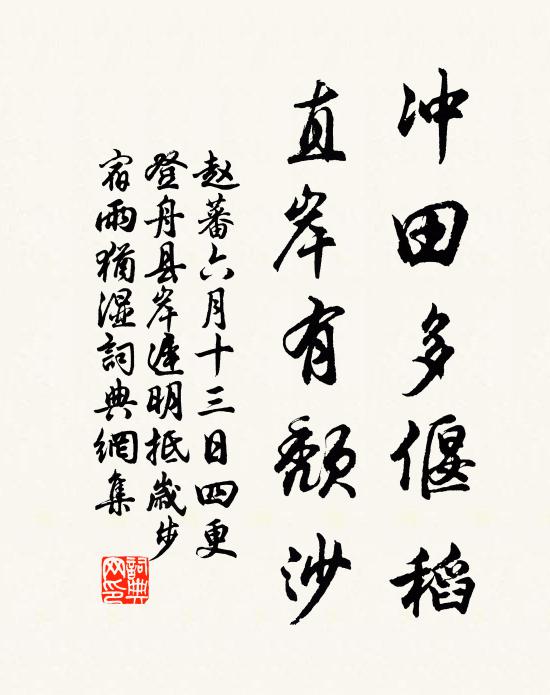 冲田多偃稻
直岸有颓沙
赵蕃六月十三日四更
登舟县岸遲明抵歲步
宿雨猶湿詞典網集
詞典网印